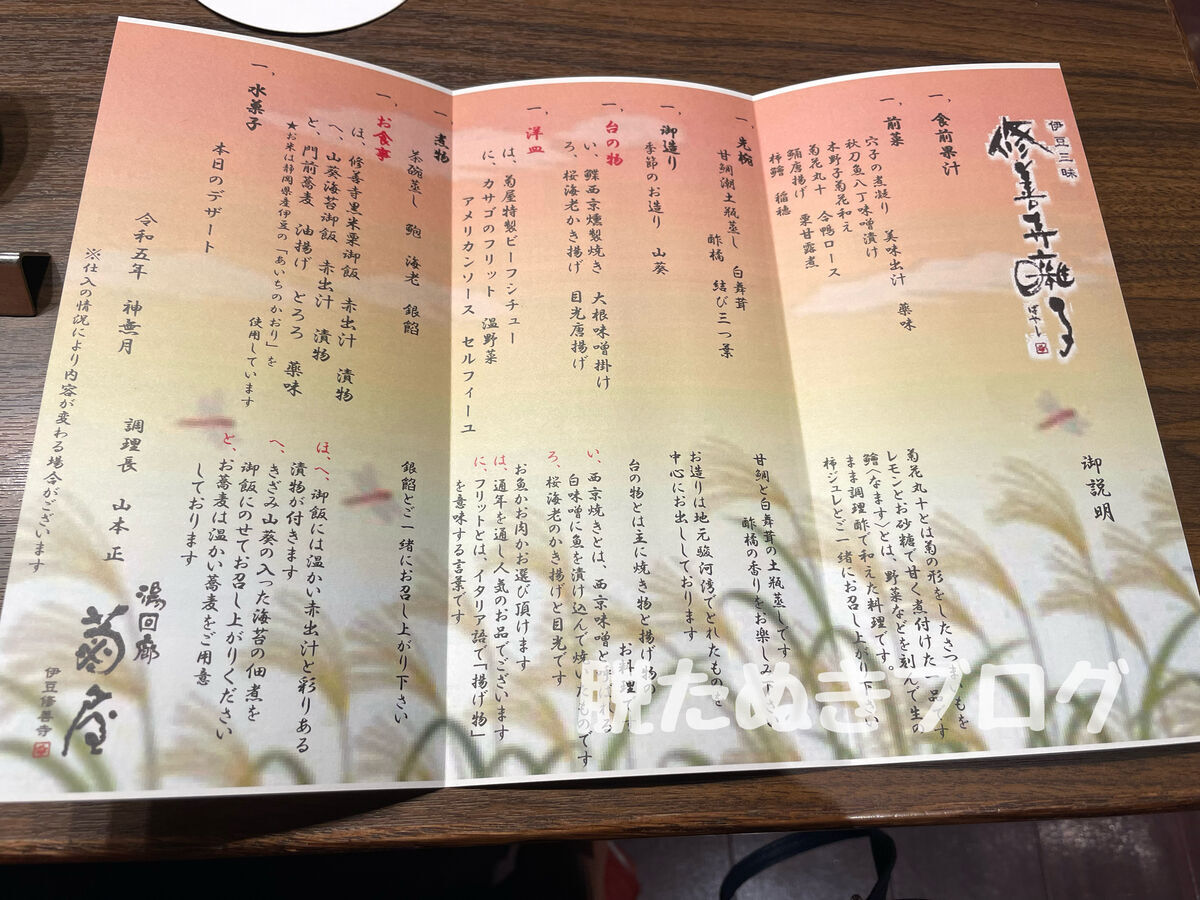 伊豆三昧
修善寺囃子
ばやし
一、食前果汁
一、前菜
穴子の煮凝り 美味出汁 薬味
秋刀魚八丁味噌漬け
木野子菊花和え
菊花丸十 合鴨ロース
鯒唐揚げ 栗甘露煮
柿鱠 稲穂
一、先椀
甘鯛潮土瓶蒸し 白舞茸
酢橘 結び三つ葉
一、御造り
季節のお造り 山葵
一、台の物
い、鰈西京燻製焼き 大根味噌掛け
ろ、桜海老かき揚げ 目光唐揚げ
一、洋皿
は、菊屋特製ビーフシチュー
に、カサゴのフリット 温野菜
アメリカンソース セルフィーユ
一、煮物
茶碗蒸し 鮑 海老 銀餡
一、お食事
ほ、修善寺黒米栗御飯 赤出汁 漬物
へ、山葵海苔御飯 赤出汁 漬物
と、門前蕎麦 油揚げ とろろ 薬味
★お米は静岡県産伊豆の「あいちのかおり」を
使用しています
一、水菓子
本日のデザート
令和五年 神無月 調理長 山本 正
※仕入の情況により内容が変わる場合がございます
御説明
菊花丸十とは菊の形をしたさつまいもを
レモンとお砂糖で甘く煮付けた一品です
鱠(なます)とは、野菜などを刻んで生の
まま調理酢で和えた料理です。
柿ジュレとご一緒にお召し上がり下さい
甘鯛と白舞茸の土瓶蒸しです
酢橘の香りをお楽しみ下さい
お造りは地元駿河湾でとれたものを
中心にお出ししております
台の物とは主に焼き物と揚げ物の
お料理です
い、西京焼きとは、西京味噌と呼ばれる
白味噌に魚を漬け込んで焼いたものです
ろ、桜海老のかき揚げと目光です
お魚かお肉かお選び頂けます
は、通年を通し人気のお品でございます
に、フリットとは、イタリア語で「揚げ物」
を意味する言葉です
銀餡とご一緒にお召し上がり下さい
ほ、へ、御飯には温かい赤出汁と彩りある
漬物が付きます
へ、きざみ山葵の入った海苔の佃煮を
御飯にのせてお召し上がりください
と、お蕎麦は温かい蕎麦をご用意
しております
湯回廊
菊屋
伊豆修善寺
たぬきブログ